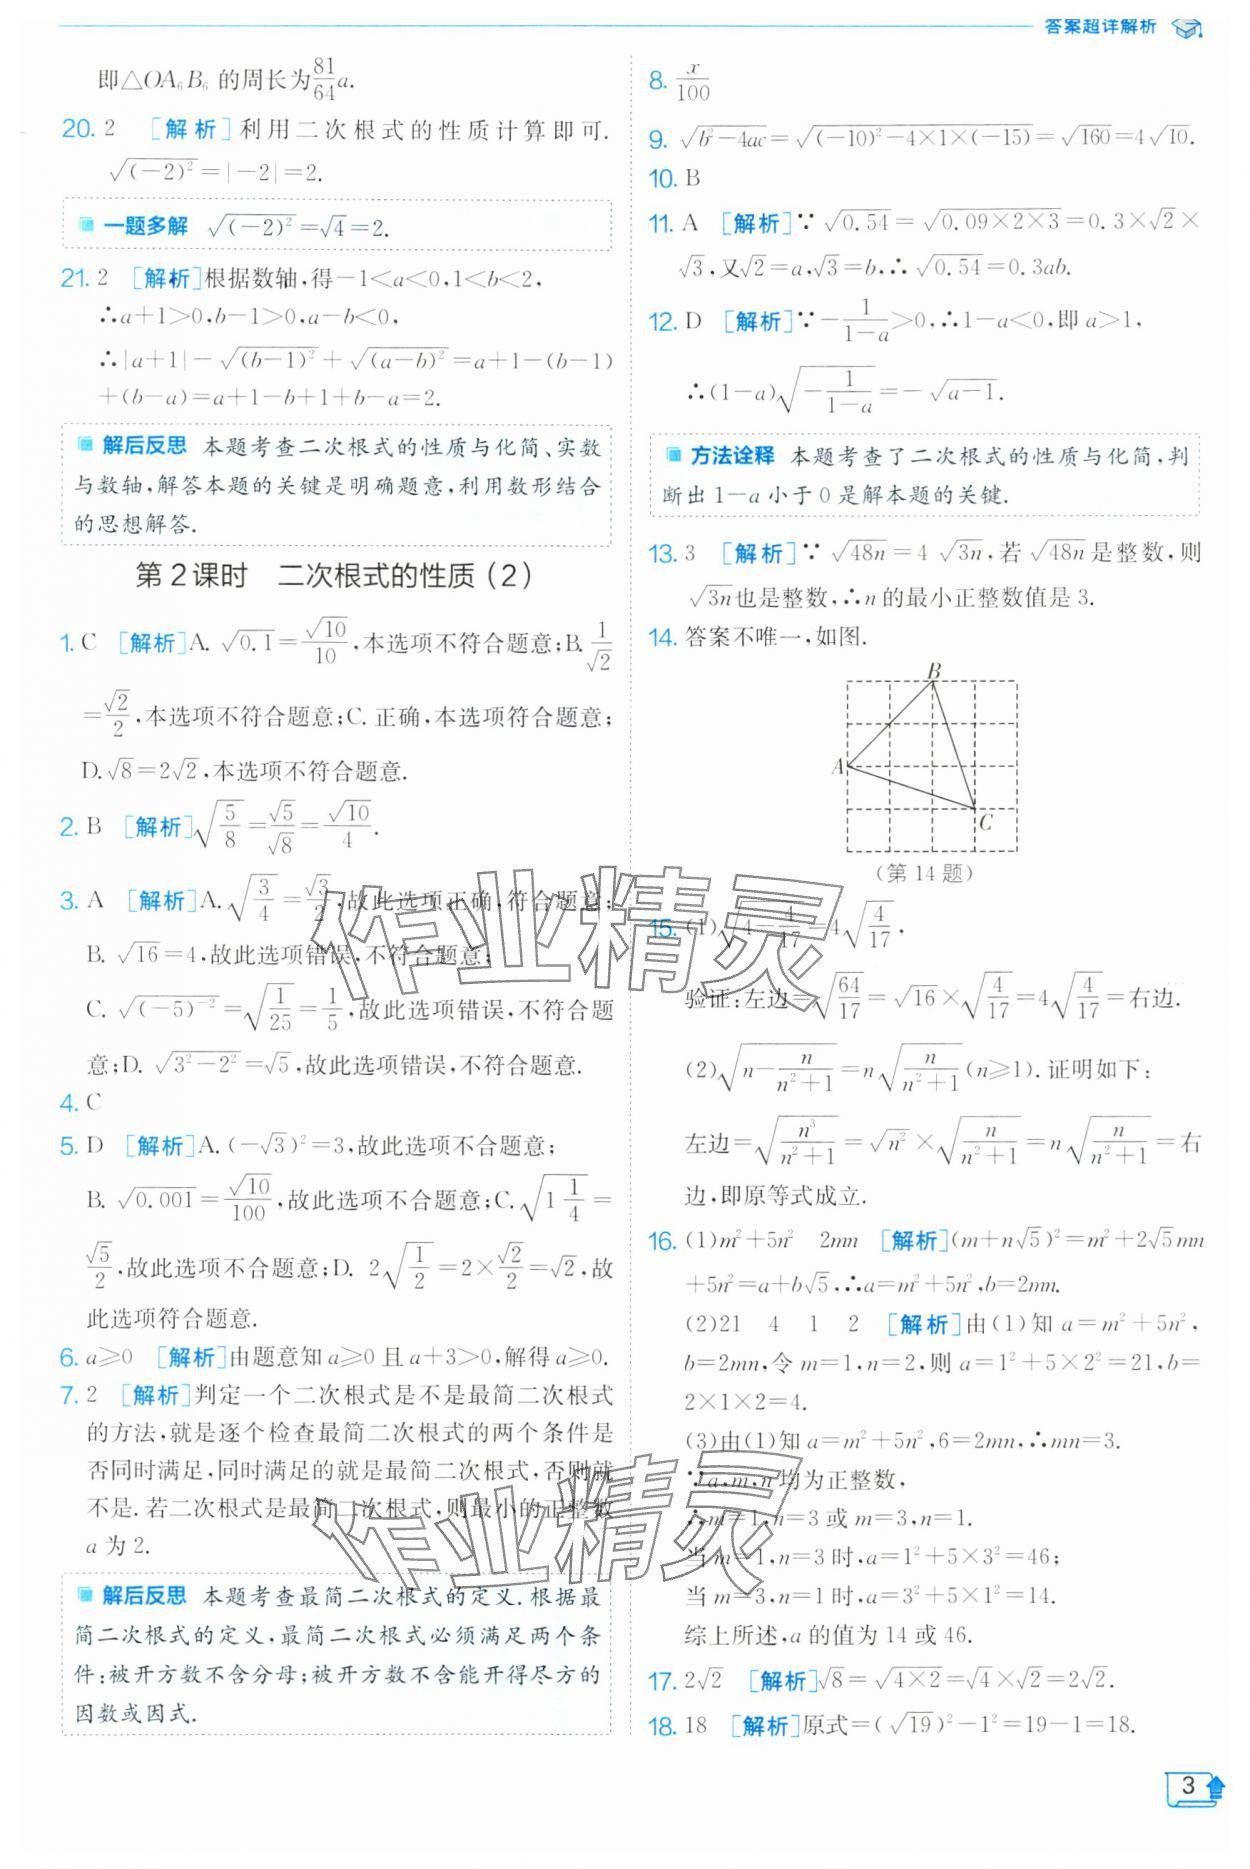 答案超详解析
即△OA₆B₆ 的周长为81/64 a.
20. 2 [解析]利用二次根式的性质计算即可.
√(-2)²=|-2|=2.
一题多解 √(-2)²=√4=2.
21. 2 [解析]根据数轴,得-1<a<0,1<b<2,
∴a+1>0,b-1>0,a-b<0,
∴|a+1|-√(b-1)²+√(a-b)²=a+1-(b-1)
+(b-a)=a+1-b+1+b-a=2.
解后反思 本题考查二次根式的性质与化简、实数
与数轴,解答本题的关键是明确题意,利用数形结合
的思想解答.
第2课时 二次根式的性质(2)
1. C [解析]A. √0.1=√10/10,本选项不符合题意;B. 1/√2
=√2/2,本选项不符合题意;C. 正确,本选项符合题意;
D. √8=2√2,本选项不符合题意.
2. B [解析]√(5/8)=√5/√8=√10/4.
3. A [解析]A. √(3/4)=√3/2,故此选项正确,符合题意;
B. √16=4,故此选项错误,不符合题意;
C. √(-5)⁻²=√(1/25)=1/5,故此选项错误,不符合题
意;D. √(3²-2²)=√5,故此选项错误,不符合题意.
4. C
5. D [解析]A. (-√3)²=3,故此选项不合题意;
B. √0.001=√10/100,故此选项不合题意;C. √(1 1/4)=
√5/2,故此选项不合题意;D. 2√(1/2)=2×√2/2=√2,故
此选项符合题意.
6. a≥0 [解析]由题意知a≥0且a+3>0,解得a≥0.
7. 2 [解析]判定一个二次根式是不是最简二次根式
的方法,就是逐个检查最简二次根式的两个条件是
否同时满足,同时满足的就是最简二次根式,否则就
不是.若二次根式是最简二次根式,则最小的正整数
a为2.
解后反思 本题考查最简二次根式的定义.根据最
简二次根式的定义,最简二次根式必须满足两个条
件:被开方数不含分母;被开方数不含能开得尽方的
因数或因式.
8. x/100
9. √(b²-4ac)=√((-10)²-4×1×(-15))=√160=4√10.
10. B
11. A [解析]∵√0.54=√(0.09×2×3)=0.3×√2×
√3,又√2=a,√3=b,∴√0.54=0.3ab.
12. D [解析]∵-1/(1-a)>0,∴1-a<0,即a>1,
∴(1-a)√(-1/(1-a))=-√(a-1).
方法诠释 本题考查了二次根式的性质与化简,判
断出1-a小于0是解本题的关键.
13. 3 [解析]∵√48n=4√3n,若√48n是整数,则
√3n也是整数,∴n的最小正整数值是3.
14. 答案不唯一,如图.
B
A
C
(第14题)
15. (1)√(4-4/17)=4√(4/17),
验证:左边=√(64/17)=√16×√(4/17)=4√(4/17)=右边.
(2)√(n-n/(n²+1))=n√(n/(n²+1))(n≥1).证明如下:
左边=√(n³/(n²+1))=√n²×√(n/(n²+1))=n√(n/(n²+1))=右
边,即原等式成立.
16. (1)m²+5n² 2mn [解析](m+n√5)²=m²+2√5mn
+5n²=a+b√5,∴a=m²+5n²,b=2mn.
(2)21 4 1 2 [解析]由(1)知a=m²+5n²,
b=2mn,令m=1,n=2,则a=1²+5×2²=21,b=
2×1×2=4.
(3)由(1)知a=m²+5n²,6=2mn,∴mn=3.
∵a,m,n均为正整数,
∴m=1,n=3或m=3,n=1.
当m=1,n=3时,a=1²+5×3²=46;
当m=3,n=1时,a=3²+5×1²=14.
综上所述,a的值为14或46.
17. 2√2 [解析]√8=√(4×2)=√4×√2=2√2.
18. 18 [解析]原式=(√19)²-1²=19-1=18.
3
作业精灵
作业精灵